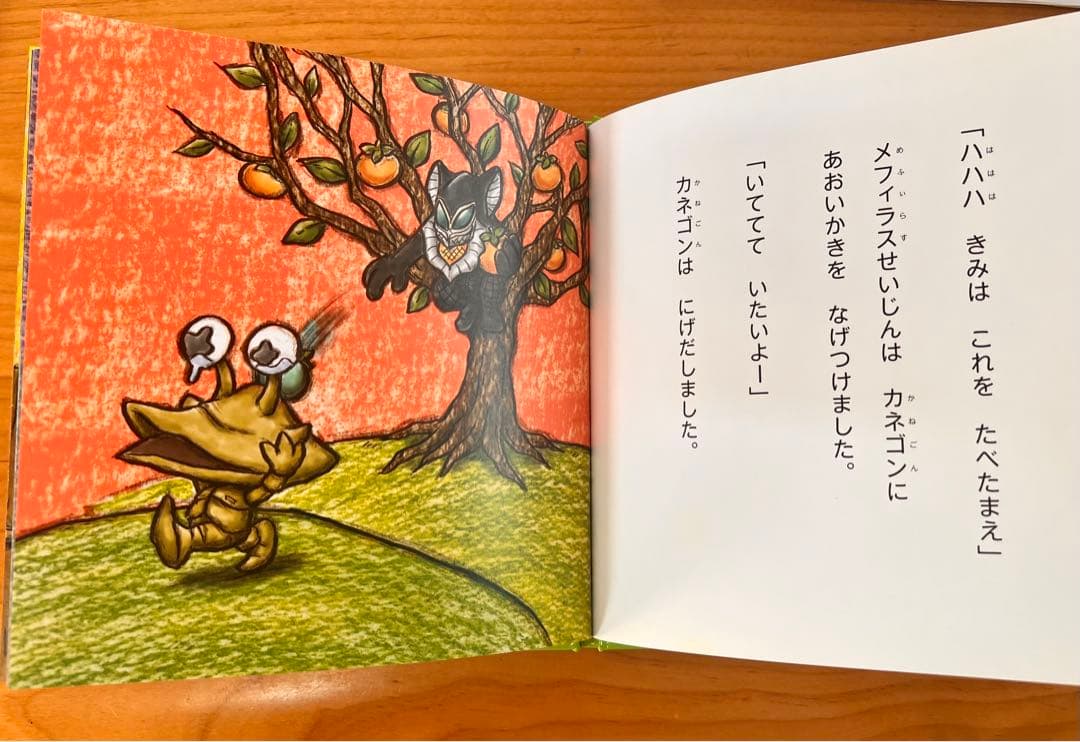 「ハハハ　きみは　これを　たべたまえ」
メフィラスせいじんは　カネゴンに
あおいかきを　なげつけました。
「いててて　いたいよー」
カネゴンは　にげだしました。